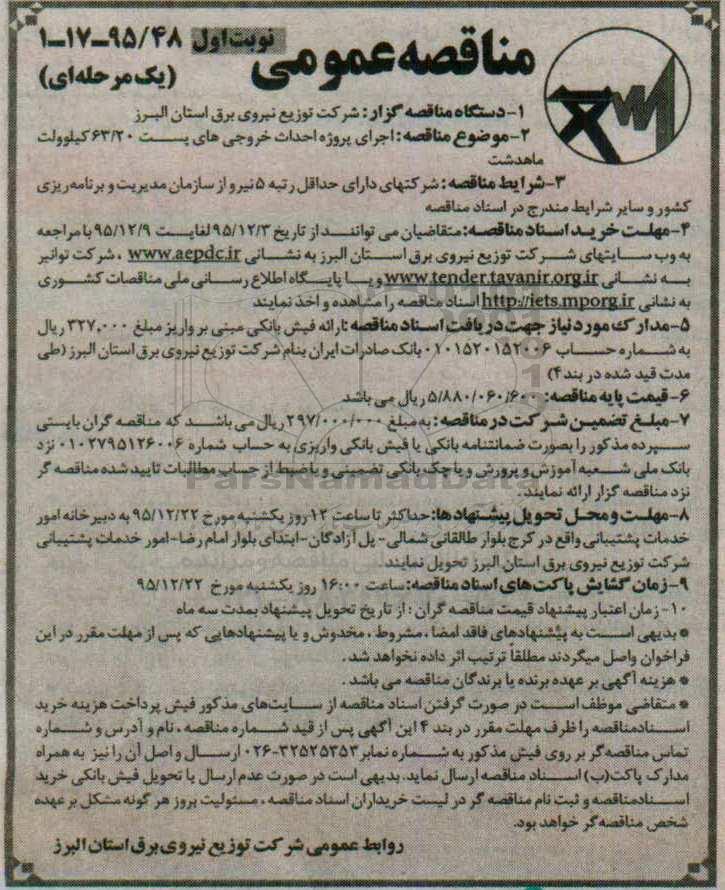 نوبت اول ۹۵/۴۸-۱۷-۱
مناقصه عمومی
(یک مرحله‌ای)
۱-دستگاه مناقصه گزار: شرکت توزیع نیروی برق استان البرز
۲-موضوع مناقصه: اجرای پروژه احداث خروجی های پست ۶۳/۲۰ کیلوولت
ماهدشت
۳-شرایط مناقصه: شرکتهای دارای حداقل رتبه ۵ نیرو از سازمان مدیریت و برنامه‌ریزی
کشور و سایر شرایط مندرج در اسناد مناقصه
۴-مهلت خرید اسناد مناقصه: متقاضیان می توانند از تاریخ ۹۵/۱۲/۳ لغایت ۹۵/۱۲/۹ با مراجعه
به وب سایتهای شرکت توزیع نیروی برق استان البرز به نشانی www.aepdc.ir ، شرکت توانیر
به نشانی www.tender.tavanir.org.ir و یا پایگاه اطلاع رسانی ملی مناقصات کشوری
به نشانی http://iets.mporg.ir اسناد مناقصه را مشاهده و اخذ نمایند
۵-مدارک مورد نیاز جهت دریافت اسناد مناقصه: ارائه فیش بانکی مبنی بر واریز مبلغ ۳۲۷,۰۰۰ ریال
به شماره حساب ۰۱۰۱۵۲۰۱۵۲۰۰۶ بانک صادرات ایران بنام شرکت توزیع نیروی برق استان البرز (طی
مدت قید شده در بند ۴)
۶-قیمت پایه مناقصه: ۵/۸۸۰/۰۶۰/۶۰۰ ریال می باشد
۷-مبلغ تضمین شرکت در مناقصه: به مبلغ ۲۹۷/۰۰۰/۰۰۰ ریال می باشد که مناقصه گران بایستی
سپرده مذکور را بصورت ضمانتنامه بانکی یا فیش بانکی واریزی به حساب شماره ۰۱۰۲۷۹۵۱۲۶۰۰۶ نزد
بانک ملی شعبه آموزش و پرورش و یا چک بانکی تضمینی و یا ضبط از حساب مطالبات تایید شده مناقصه گر
نزد مناقصه گزار ارائه نمایند.
۸-مهلت و محل تحویل پیشنهادها: حداکثر تا ساعت ۱۲ روز یکشنبه مورخ ۹۵/۱۲/۲۲ به دبیرخانه امور
خدمات پشتیبانی واقع در کرج بلوار طالقانی شمالی- پل آزادگان-ابتدای بلوار امام رضا-امور خدمات پشتیبانی
شرکت توزیع نیروی برق استان البرز تحویل نمایند.
۹-زمان گشایش پاکت‌های اسناد مناقصه: ساعت ۱۶:۰۰ روز یکشنبه مورخ ۹۵/۱۲/۲۲
۱۰-زمان اعتبار پیشنهاد قیمت مناقصه گران : از تاریخ تحویل پیشنهاد بمدت سه ماه
* بدیهی است به پیشنهادهای فاقد امضا ، مشروط ، مخدوش و یا پیشنهادهایی که پس از مهلت مقرر در این
فراخوان واصل میگردند مطلقاً ترتیب اثر داده نخواهد شد .
* هزینه آگهی بر عهده برنده یا برندگان مناقصه می باشد .
* متقاضی موظف است در صورت گرفتن اسناد مناقصه از سایت‌های مذکور فیش پرداخت هزینه خرید
اسناد مناقصه را ظرف مهلت مقرر در بند ۴ این آگهی پس از قید شماره مناقصه ، نام و آدرس و شماره
تماس مناقصه گر بر روی فیش مذکور به شماره نمابر ۳۲۵۲۵۳۵۳-۰۲۶ ارسال و اصل آن را نیز به همراه
مدارک پاکت(ب) اسناد مناقصه ارسال نماید. بدیهی است در صورت عدم ارسال یا تحویل فیش بانکی خرید
اسناد مناقصه و ثبت نام مناقصه گر در لیست خریداران اسناد مناقصه ، مسئولیت بروز هر گونه مشکل بر عهده
شخص مناقصه گر خواهد بود.
روابط عمومی شرکت توزیع نیروی برق استان البرز
ParsNamadData